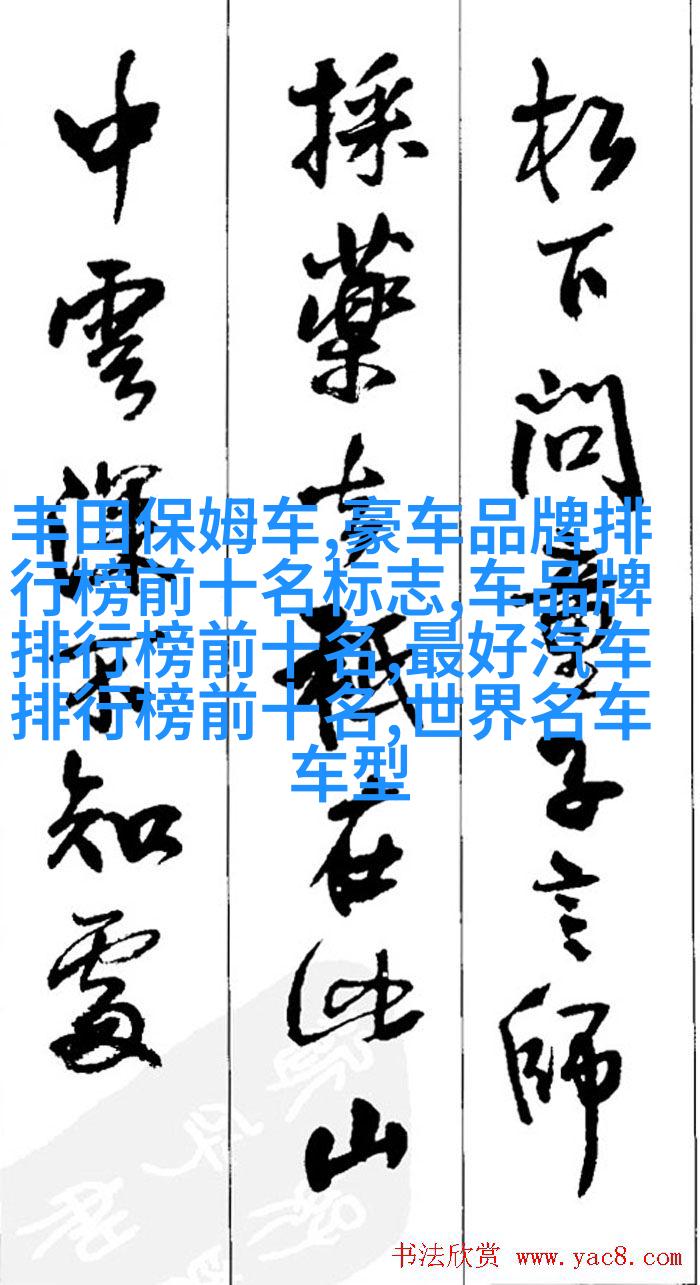 松下问童子言師
採薬去祗在此山
中雲深不知處
丰田保姆车,豪车品牌排
行榜前十名标志,车品牌
排行榜前十名,最好汽车
排行榜前十名,世界名车
车型
书法欣赏 www.yac8.com